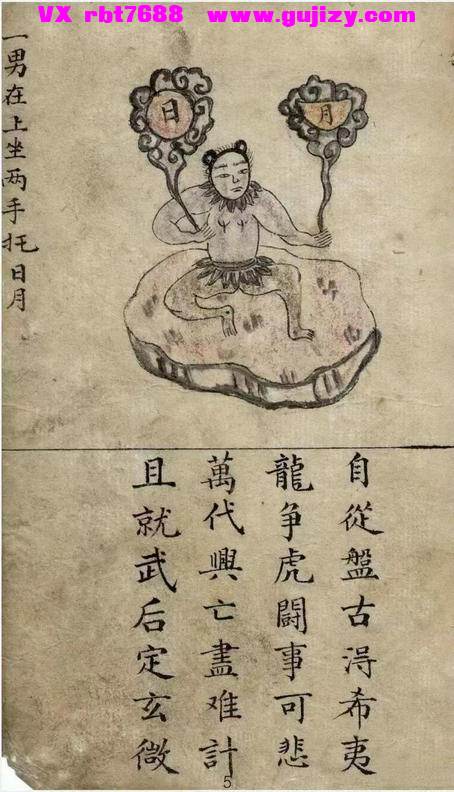 VX rbt7688 www.gujizy.com
一男在上坐两手托日月
日
月
自從盤古淂希夷
龍争虎闘事可悲
萬代興亡盡难計
且就武后定玄微
5